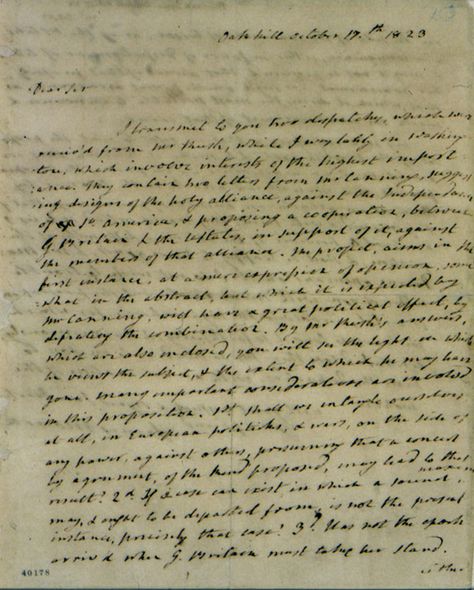 Oakhill October 17.th 1823
Dear Sir
I transmit to you two dispatches, which were
receiv'd from Mr Rush, while I was lately in Washing
ton, which involve interests of the highest import
ance. They contain two letters from Mr Canning, suggest
ing designs of the holy alliance, against the Independence
of So. America, & proposing a co-operation, between
G. Britain & the UStates, in support of it, against
the members of that alliance. The project, aims in the
first instance, at a mere expression of opinion, some
what in the abstract, but which it is expected by
Mr Canning, will have a great political effect, by
defeating the combination. By Mr Rush's answers,
which are also enclosed, you will see the light in which
he views the subject, & the extent to which he may have
gone. Many important considerations are involved
in this proposition. 1st Shall we entangle ourselves,
at all, in European politicks, & wars, on the side of
any power, against others, presuming that a concert
by agreement, of the kind proposed, may lead to that
result? 2d If a case can exist in which a sound maxim
may, & ought to be departed from, is not the present
instance, precisely that case? 3d Has not the epoch
arriv'd when G. Britain must take her stand,
either
40178